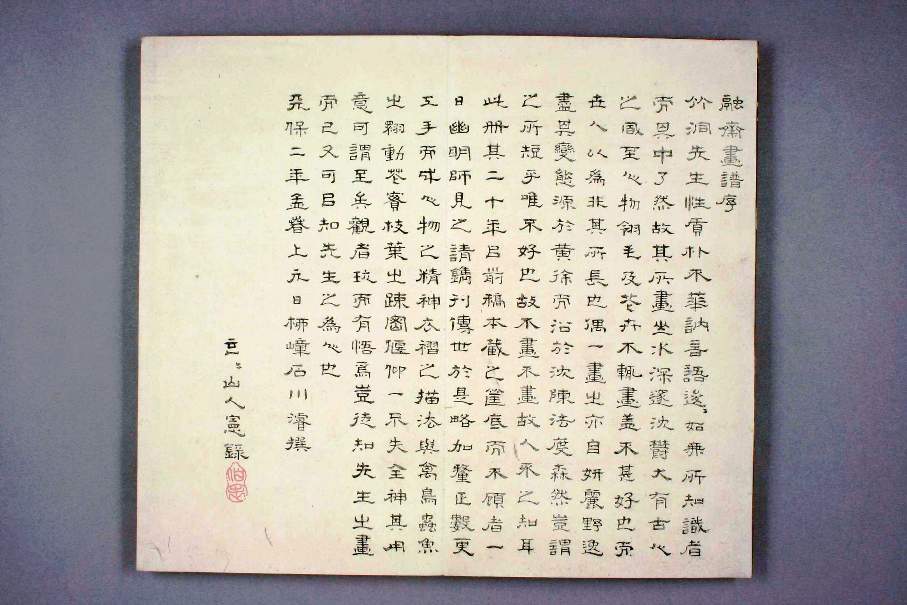 融齋畫譜序
竹洞先生性質朴不華訥言語逡〻如無所知識者
而其中了然故其所畫山水深邃沈鬱大有古人
之風至人物翎毛及花卉不輒畫蓋不甚好也而
世人以為非其所長也偶一畫之亦自妍麗野逸
盡其變態源於黃徐而沿於沈陳法度森然豈謂
之所短乎唯不好也故不畫不畫故人不之知耳
此冊其二十年㠯前稿本藏之筐底而不顧者一
日幽明師見之請鐫刊傳世於是略加釐正數更
工手而成人物之精神衣褶之描法與禽鳥蟲魚
之翾動花實枝葉之疎密偃仰一不失全神其用
意可謂至矣觀者玩而有悟焉豈徒知先生之畫
而已又可㠯知先生之為人也
天保二年孟春上元日柳嶂石川濬撰
玄〻山人憲錄